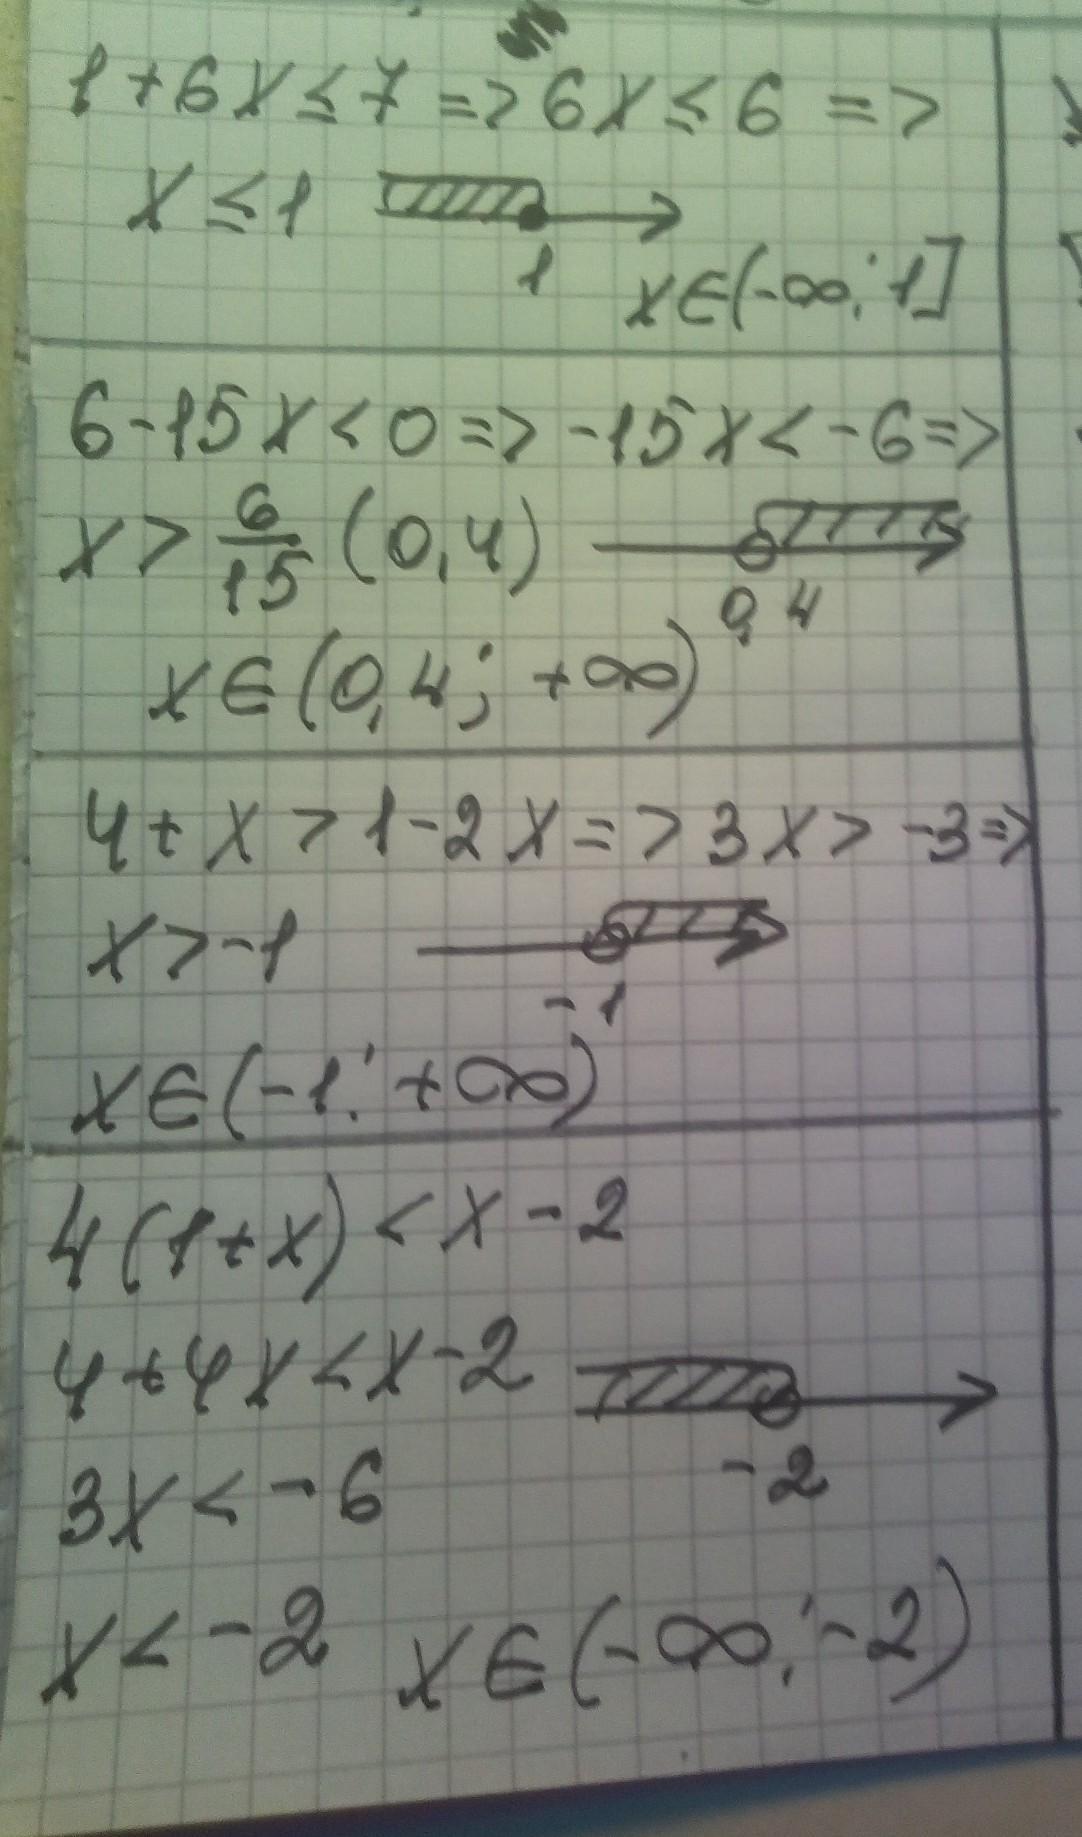 1+6x≤7=>6x≤6=>
x≤1
1
x∈(-∞;1]
6-15x<0=>-15x<-6=>
x>6/15 (0,4)
0,4
x∈(0,4;+∞)
4+x>1-2x=>3x>-3=>
x>-1
-1
x∈(-1;+∞)
4(1+x)<x-2
4+4x<x-2
-2
3x<-6
x<-2 x∈(-∞;-2)